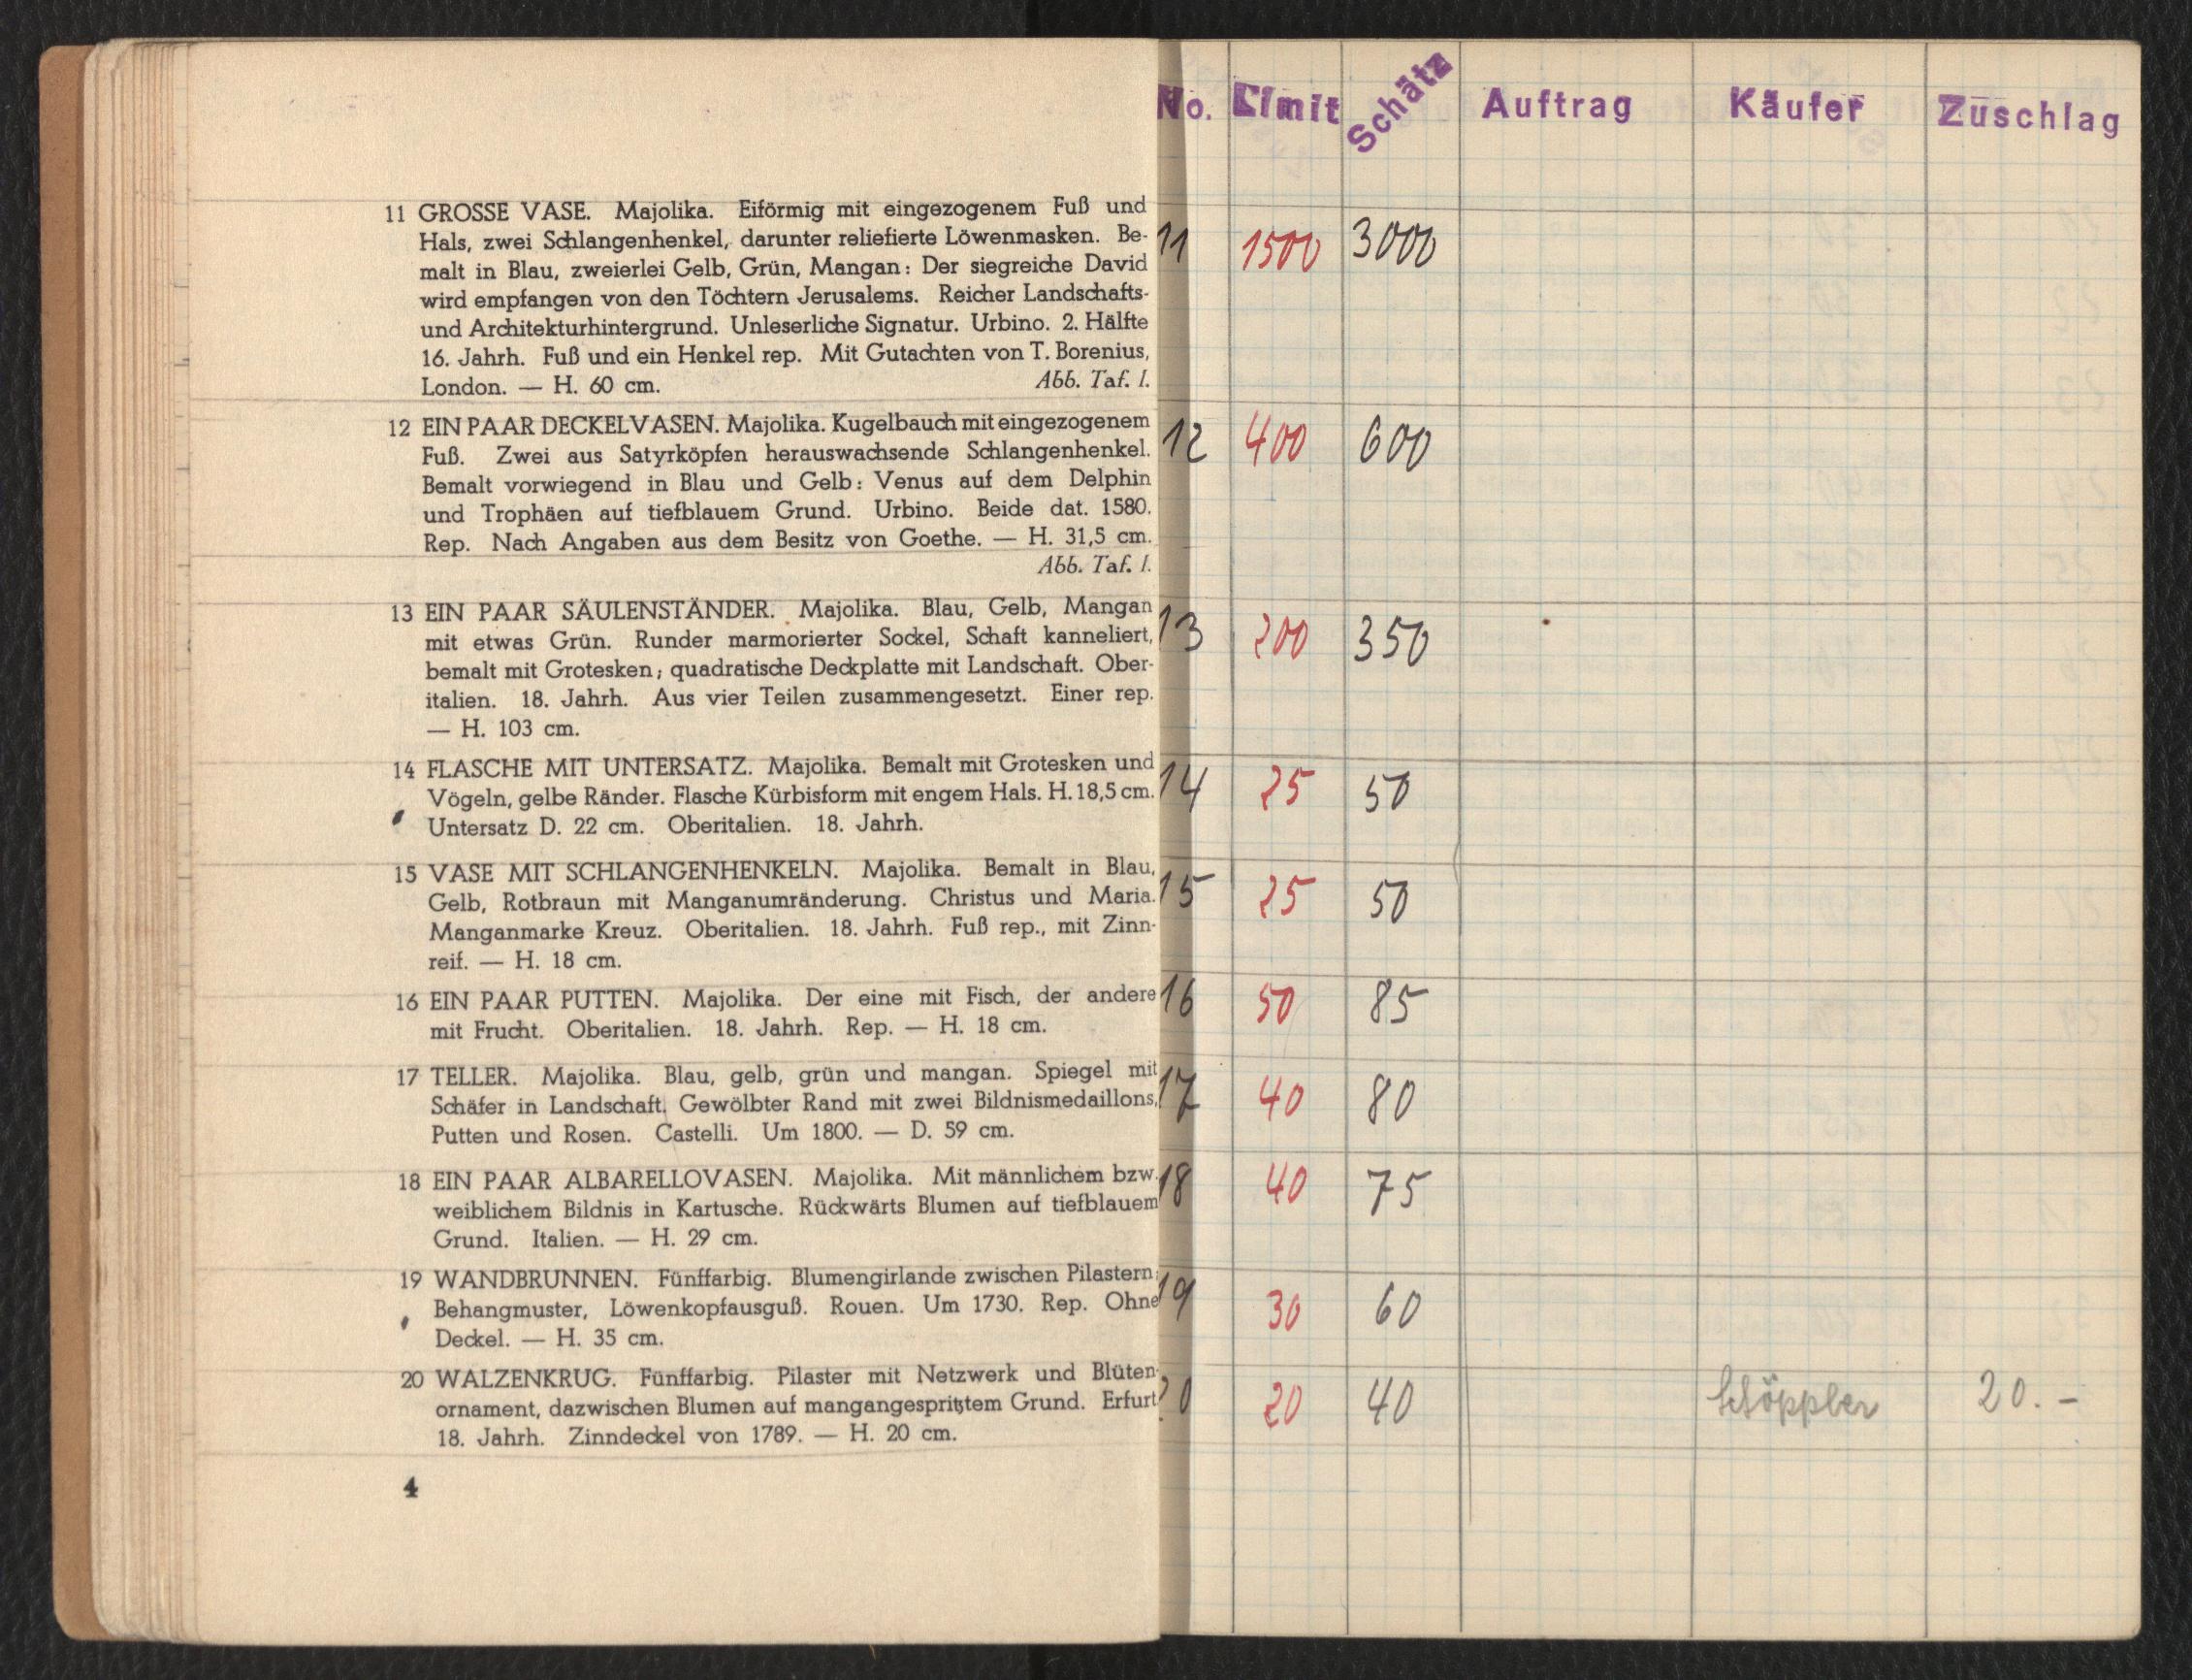 11 GROSSE VASE. Majolika. Eiförmig mit eingezogenem Fuß und
Hals, zwei Schlangenhenkel, darunter reliefierte Löwenmasken. Be-
malt in Blau, zweierlei Gelb, Grün, Mangan: Der siegreiche David
wird empfangen von den Töchtern Jerusalems. Reicher Landschafts-
und Architekturhintergrund. Unleserliche Signatur. Urbino. 2. Hälfte
16. Jahrh. Fuß und ein Henkel rep. Mit Gutachten von T. Borenius,
London. — H. 60 cm. Abb. Taf. I.
12 EIN PAAR DECKELVASEN. Majolika. Kugelbauch mit eingezogenem
Fuß. Zwei aus Satyrköpfen herauswachsende Schlangenhenkel.
Bemalt vorwiegend in Blau und Gelb: Venus auf dem Delphin
und Trophäen auf tiefblauem Grund. Urbino. Beide dat. 1580.
Rep. Nach Angaben aus dem Besitz von Goethe. — H. 31,5 cm.
Abb. Taf. I.
13 EIN PAAR SÄULENSTÄNDER. Majolika. Blau, Gelb, Mangan
mit etwas Grün. Runder marmorierter Sockel, Schaft kanneliert,
bemalt mit Grotesken; quadratische Deckplatte mit Landschaft. Ober-
italien. 18. Jahrh. Aus vier Teilen zusammengesetzt. Einer rep.
— H. 103 cm.
14 FLASCHE MIT UNTERSATZ. Majolika. Bemalt mit Grotesken und
Vögeln, gelbe Ränder. Flasche Kürbisform mit engem Hals. H. 18,5 cm.
Untersatz D. 22 cm. Oberitalien. 18. Jahrh.
15 VASE MIT SCHLANGENHENKELN. Majolika. Bemalt in Blau,
Gelb, Rotbraun mit Manganumränderung. Christus und Maria.
Manganmarke Kreuz. Oberitalien. 18. Jahrh. Fuß rep., mit Zinn-
reif. — H. 18 cm.
16 EIN PAAR PUTTEN. Majolika. Der eine mit Fisch, der andere
mit Frucht. Oberitalien. 18. Jahrh. Rep. — H. 18 cm.
17 TELLER. Majolika. Blau, gelb, grün und mangan. Spiegel mit
Schäfer in Landschaft. Gewölbter Rand mit zwei Bildnismedaillons,
Putten und Rosen. Castelli. Um 1800. — D. 59 cm.
18 EIN PAAR ALBARELLOVASEN. Majolika. Mit männlichem bzw.
weiblichem Bildnis in Kartusche. Rückwärts Blumen auf tiefblauem
Grund. Italien. — H. 29 cm.
19 WANDBRUNNEN. Fünffarbig. Blumengirlande zwischen Pilastern;
Behangmuster, Löwenkopfausguß. Rouen. Um 1730. Rep. Ohne
Deckel. — H. 35 cm.
20 WALZENKRUG. Fünffarbig. Pilaster mit Netzwerk und Blüten-
ornament, dazwischen Blumen auf mangangespritztem Grund. Erfurt
18. Jahrh. Zinndeckel von 1789. — H. 20 cm.
4
No. Limit Schätz Auftrag Käufer Zuschlag
11 1500 3000
12 400 600
13 200 350
14 25 50
15 25 50
16 50 85
17 40 80
18 40 75
19 30 60
20 20 40 20.-